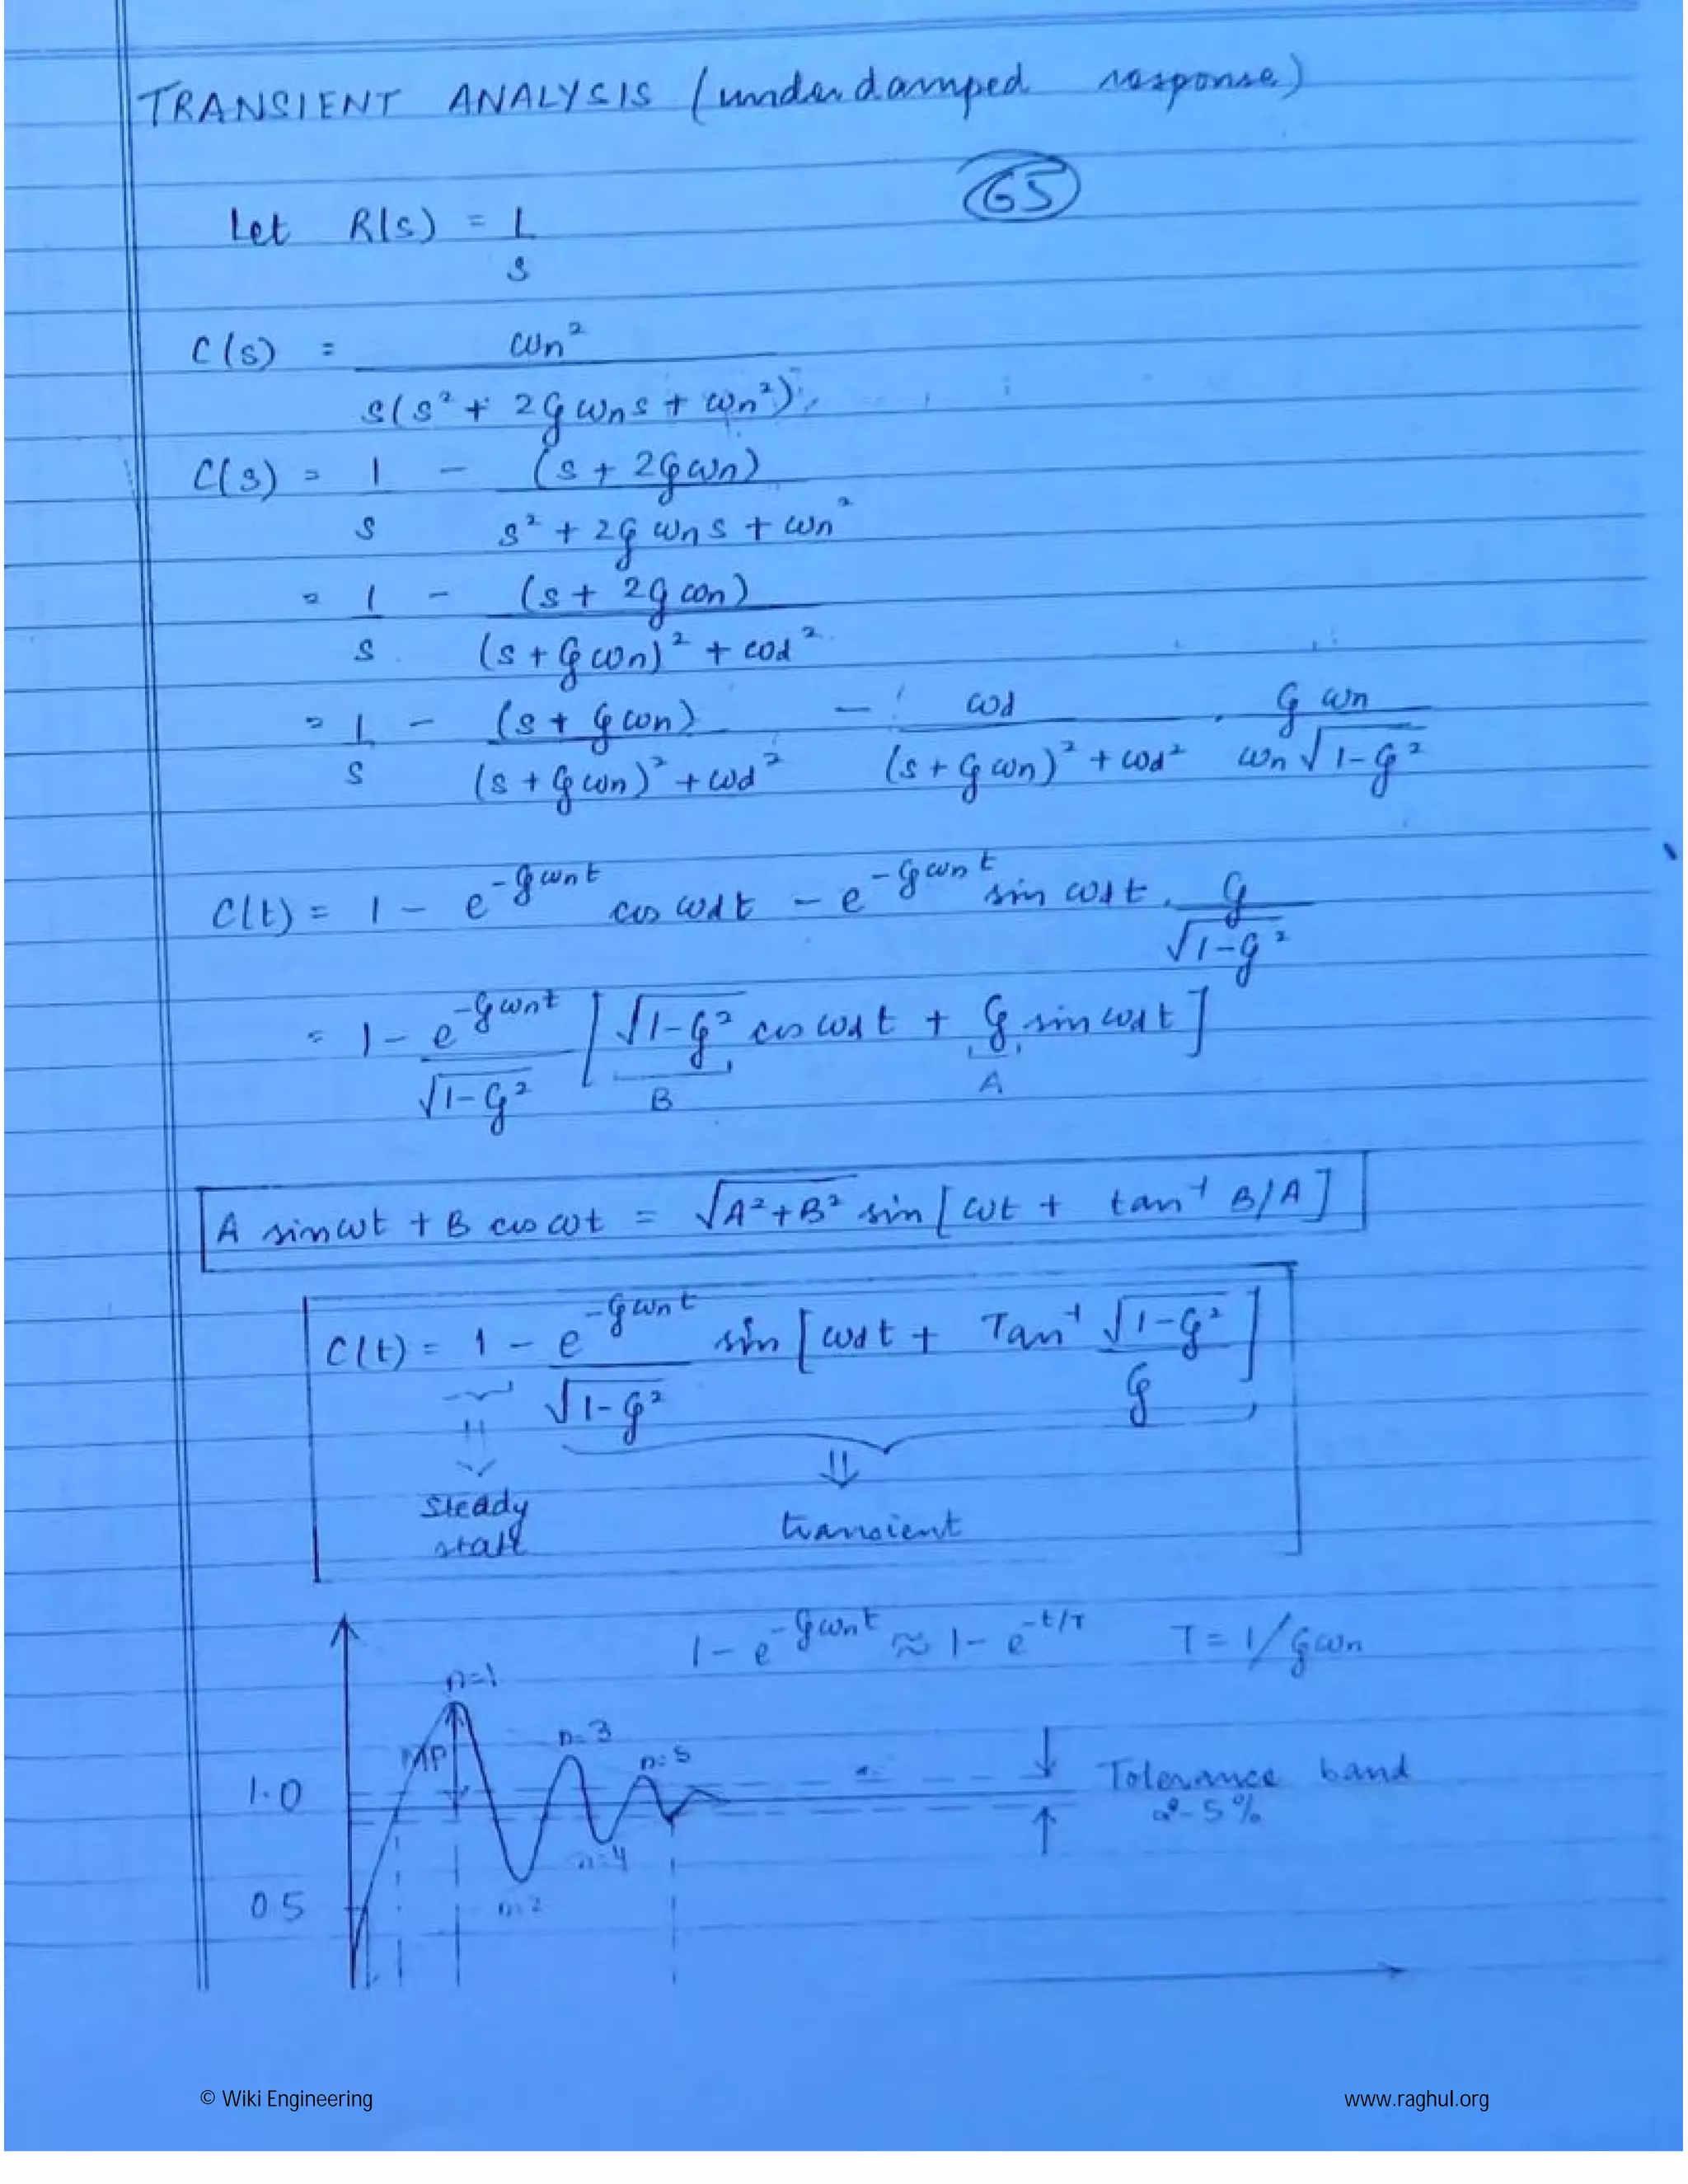 TRANSIENT ANALYSIS (underdamped response)
65
Let R(s) = 1/s
C(s) = ωn² / s(s² + 2ζωns + ωn²)
C(s) = 1/s - (s + 2ζωn) / s² + 2ζωns + ωn²
= 1/s - (s + 2ζωn) / (s + ζωn)² + ωd²
= 1/s - (s + ζωn) / (s + ζωn)² + ωd² - ωd / (s + ζωn)² + ωd² . ζωn / ωn√1-ζ²
C(t) = 1 - e^-ζωnt cos ωdt - e^-ζωnt sin ωdt . ζ / √1-ζ²
= 1 - e^-ζωnt / √1-ζ² [√1-ζ² cos ωdt + ζ sin ωdt]
B A
A sin ωt + B cos ωt = √A²+B² sin [ωt + tan⁻¹ B/A]
C(t) = 1 - e^-ζωnt / √1-ζ² sin [ωdt + Tan⁻¹ √1-ζ² / ζ]
steady state
transient
1 - e^-ζωnt ≈ 1 - e^-t/T T = 1/ζωn
n=1
n=3
MP
n=5
1.0
Tolerance band
2-5%
n=4
0.5
n=2
© Wiki Engineering
www.raghul.org